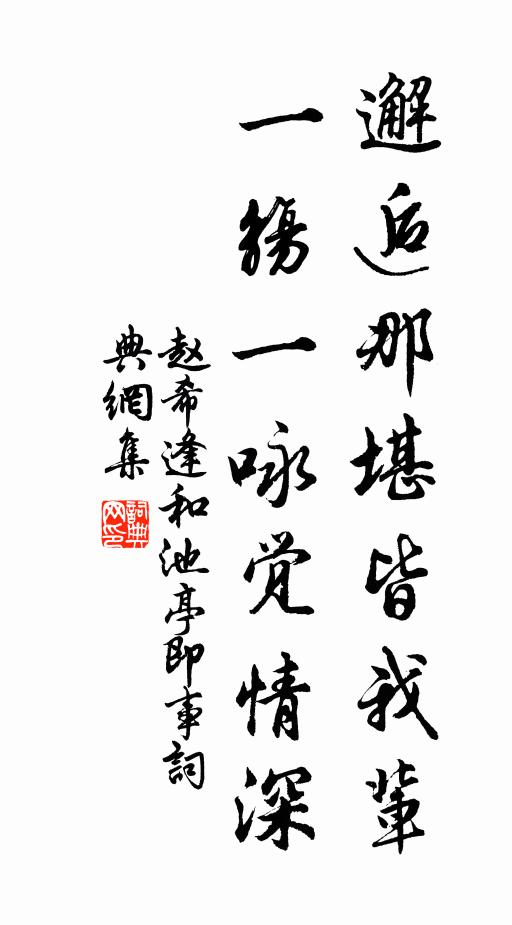 邂逅那堪皆我輩
一觴一咏觉情深
赵希逢和池亭即事詞
典網集
詞典网印